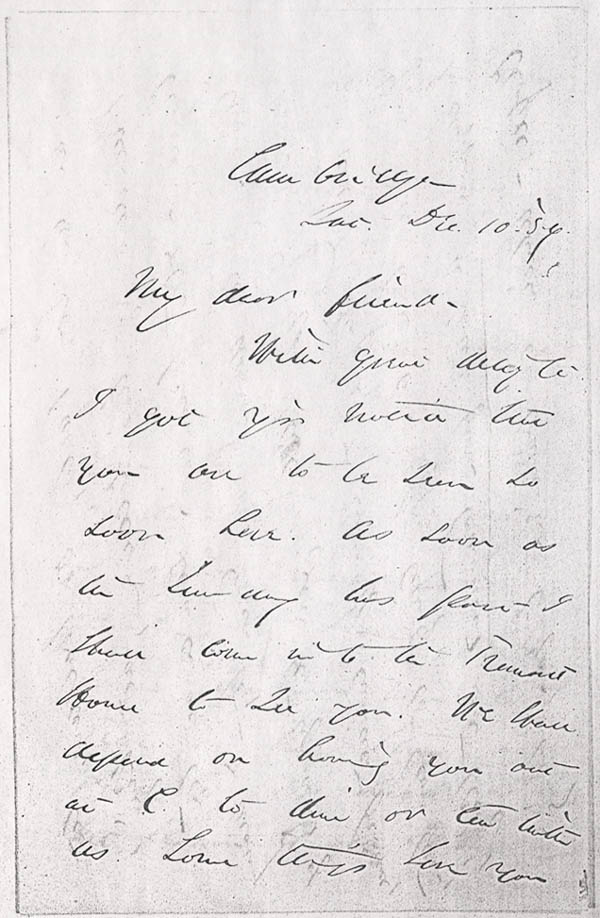 Cambridge
Sat. Dec. 10. '54.
My dear friend -
With great delight
I got yr notice that
you are to be seen so
soon here. As soon as
the Sunday has past I
shall come in to the Tremont
House to see you. We shall
depend on having you out
at C. to dine or tea with
us. Some things here you